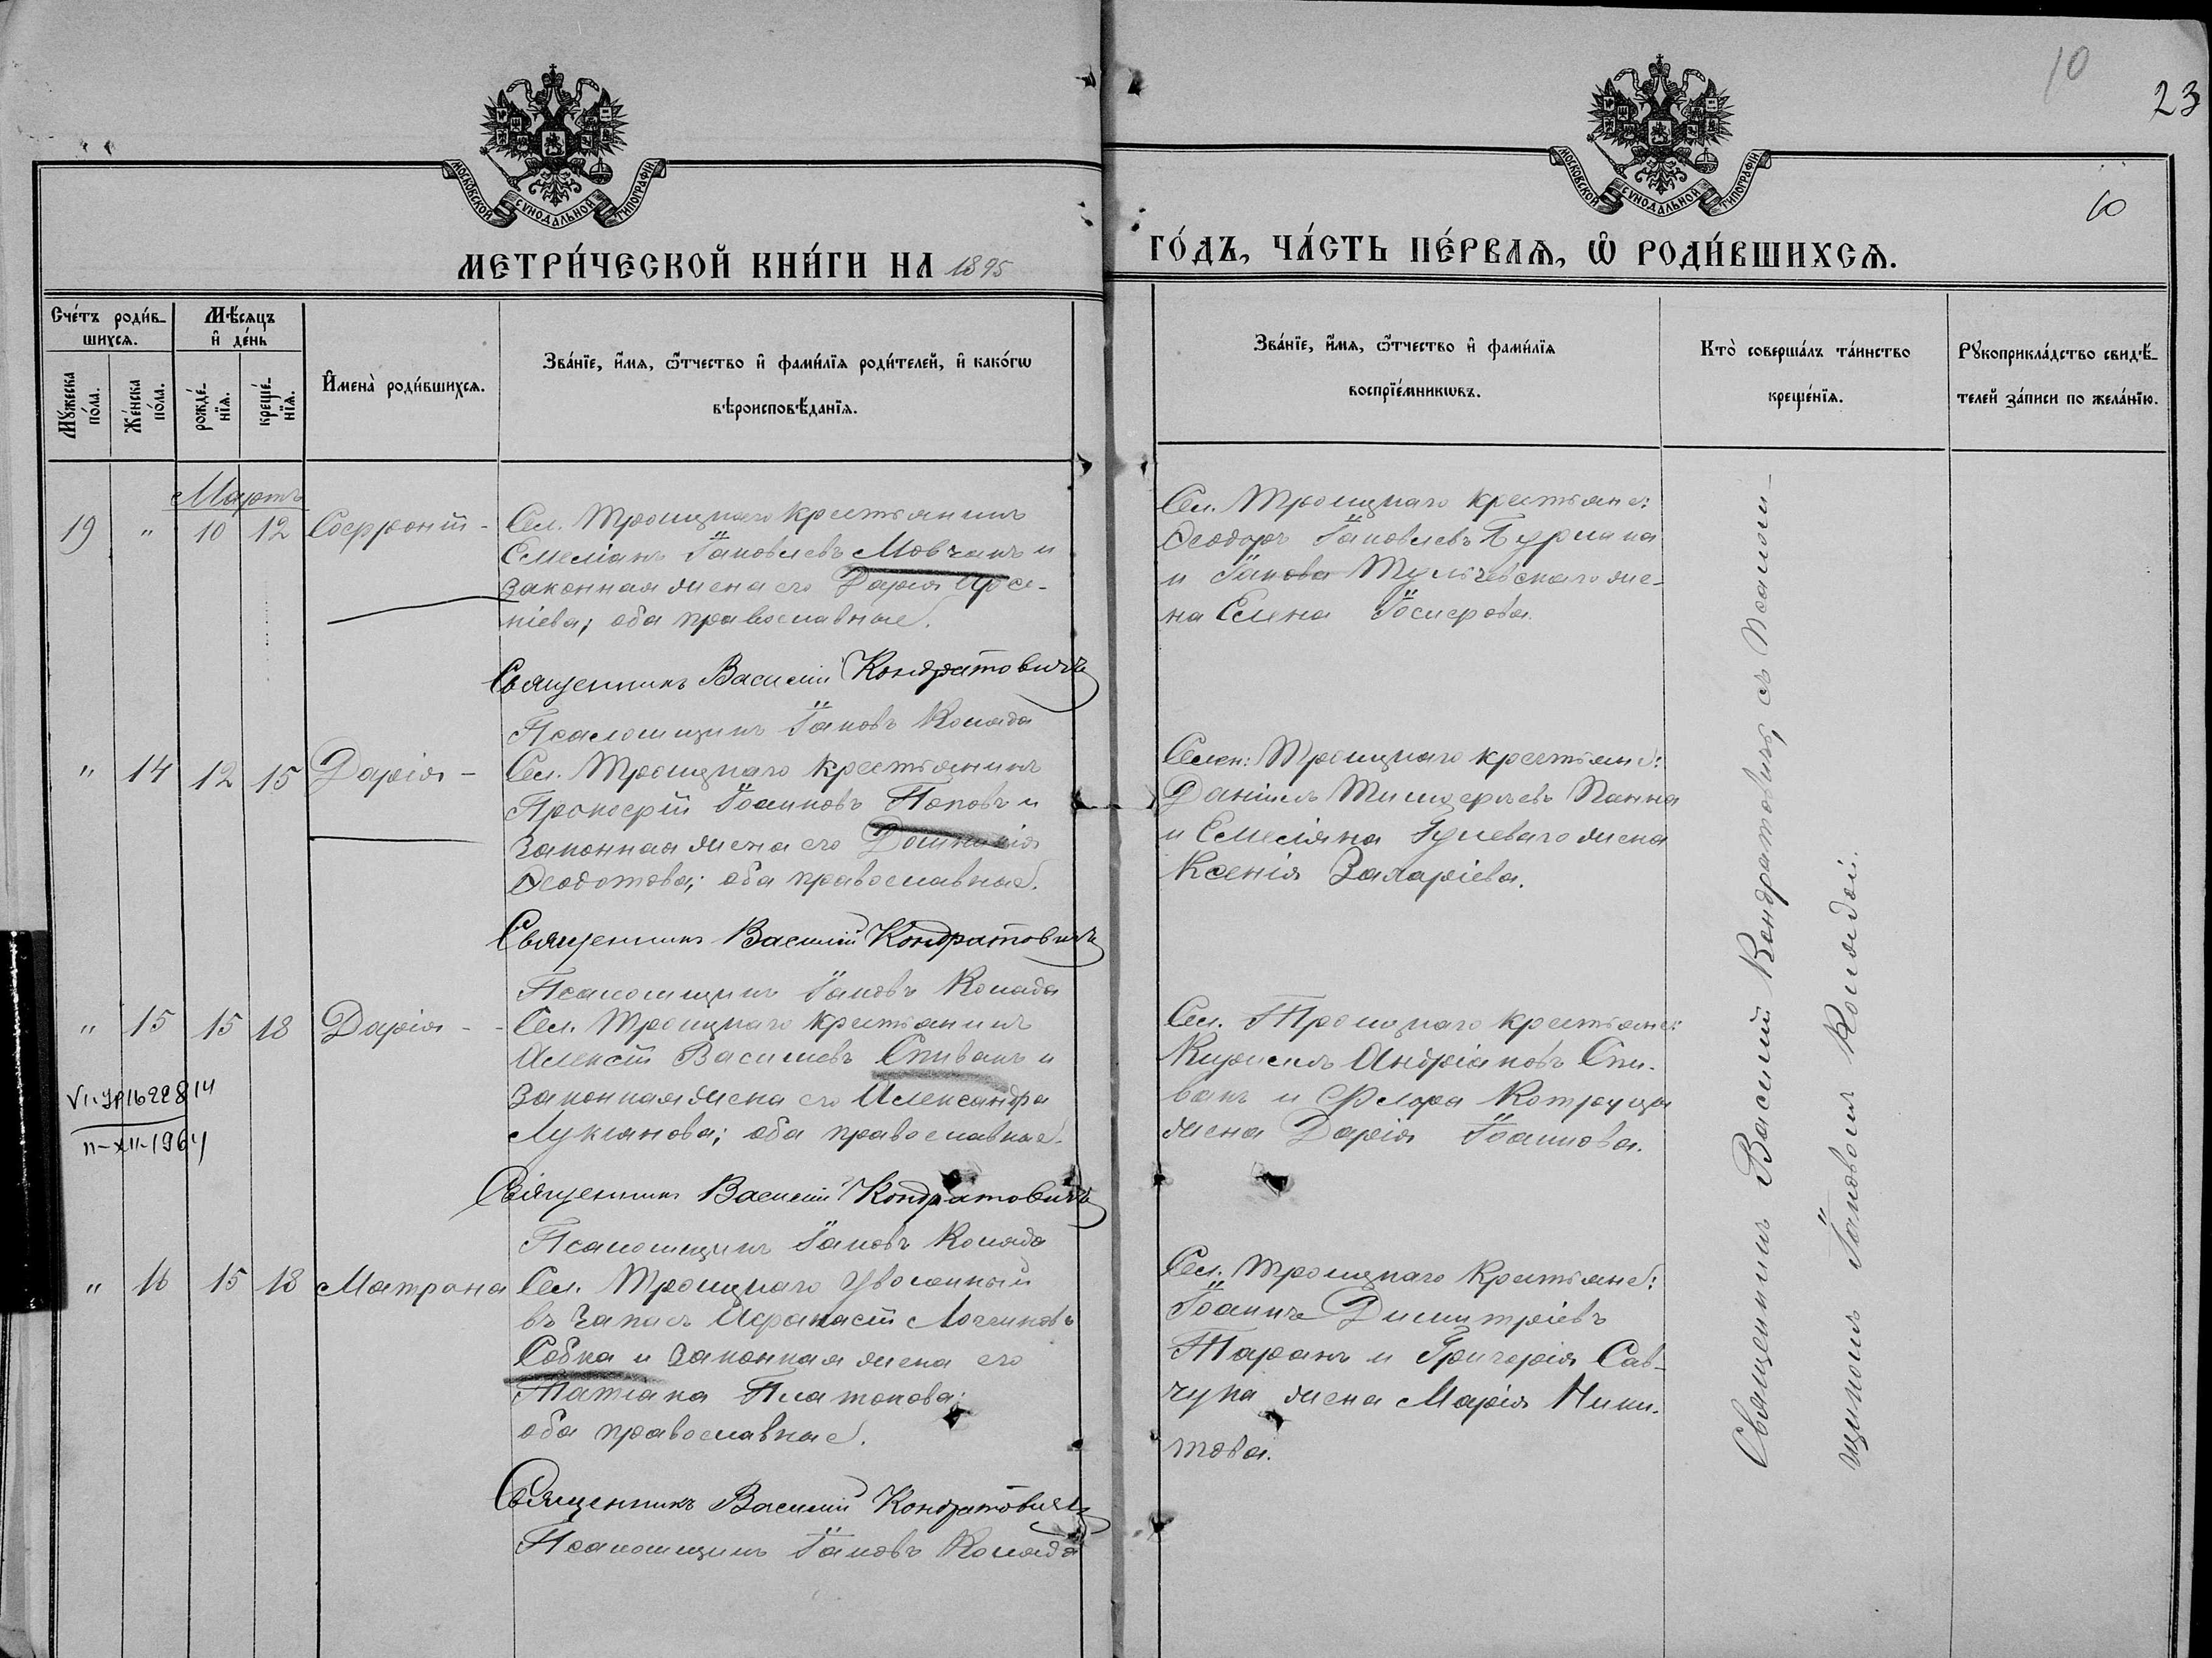 10
23
10
МОСКОВСКОЙ СУНОДАЛЬНОЙ ТИПОГРАФІИ
МОСКОВСКОЙ СУНОДАЛЬНОЙ ТИПОГРАФІИ
МЕТРИ́ЧЕСКОЙ КНИ́ГИ НА 1895
ГО́ДЪ, ЧА́СТЬ ПЕ́РВАѦ, Ѡ҆ РОДИ́ВШИХСѦ.
Сче́тъ роди́в-
шихсѧ.
Мꙋжеска
по́ла.
Же́нска
по́ла.
Мѣ́сѧцъ
и҆ де́нь
рожде́-
нїѧ.
креще́-
нїѧ.
И҆мена̀ роди́вшихсѧ.
Зва́нїе, и҆́мѧ, ѻ҆́тчество и҆ фами́лїѧ роди́телей, и҆ како́гѡ
вѣроисповѣ́данїѧ.
Зва́нїе, и҆́мѧ, ѻ҆́тчество и҆ фами́лїѧ
воспрїе́мникѡвъ.
Кто̀ соверша́лъ та́инство
креще́нїѧ.
Рꙋкоприкла́дство свидѣ́-
телей за́писи по жела́нїю.
Мартъ
19 " 10 12 Софроній - Сел. Троицкаго крестьянинъ
Емеліанъ Іаковлевъ Мовчанъ и
законная жена его Дарія Арсе-
ніева; оба православные.
Священникъ Василій Кондратовичъ
Псаломщикъ Іаковъ Коляда
Сел. Троицкаго крестьяне:
Ѳеодоръ Іаковлевъ Бурлака
и Іакова Тульчевскаго же-
на Елена Іосифова.
" 14 12 15 Дарія - Сел. Троицкаго крестьянинъ
Прокофій Іоанновъ Поповъ и
законная жена его Домникія
Ѳеодотова; оба православные.
Священникъ Василій Кондратовичъ
Псаломщикъ Іаковъ Коляда
Селен: Троицкаго крестьяне:
Даніилъ Тимофеевъ Панна
и Емеліана Гулеваго жена
Ксенія Захаріева.
" 15 15 18 Дарія - Сел. Троицкаго крестьянинъ
Алексій Василиевъ Спивакъ и
законная жена его Александра
Лукіанова; оба православные.
Священникъ Василій Кондратовичъ
Псаломщикъ Іаковъ Коляда
Сел. Троицкаго крестьяне:
Кириллъ Андріановъ Спи-
вакъ и Флора Котруца
жена Дарія Іоаннова.
II-XII-1964
" 16 15 18 Матрона Сел. Троицкаго уволенный
въ запасъ Афанасій Логгиновъ
Собка и законная жена его
Татіана Платонова;
оба православные.
Священникъ Василій Кондратовичъ
Псаломщикъ Іаковъ Коляда
Сел. Троицкаго крестьяне:
Іоаннъ Димитріевъ
Таранъ и Григорія Сав-
чука жена Марія Ники-
това.
Священникъ Василій Кондратовичъ съ псалом-
щикомъ Іаковомъ Колядой.